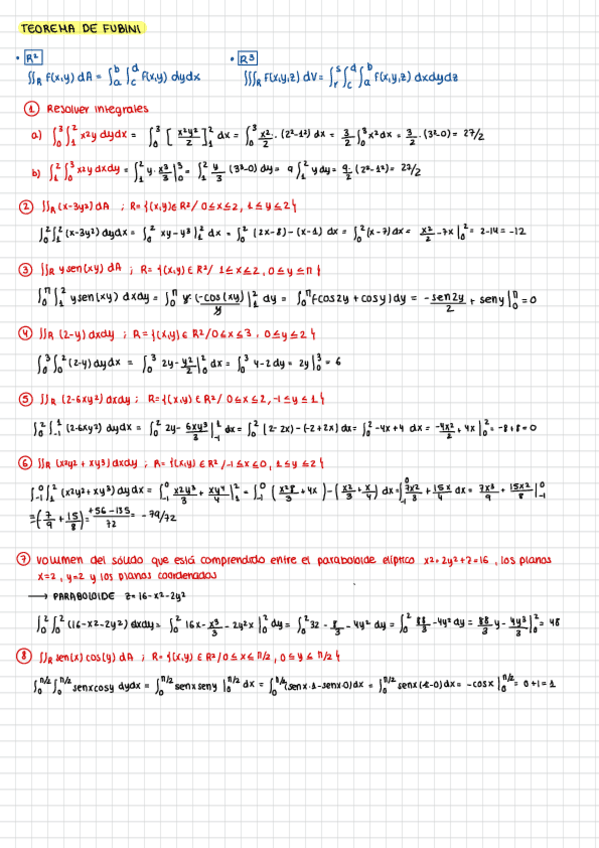 TEOREMA DE FUBINI
• R² • R³
∬R f(x,y) dA = ∫ₐᵇ ∫꜀ᵈ f(x,y) dydx ∭R F(x,y,z) dV = ∫ᵣˢ ∫꜀ᵈ ∫ₐᵇ F(x,y,z) dxdydz
① Resolver integrales
a) ∫₀³ ∫₁² x²y dydx = ∫₀³ [x²y²/2]₁² dx = ∫₀³ x²/2 · (2²-1²) dx = 3/2 ∫₀³ x² dx = 3/2 · (3²-0) = 27/2
b) ∫₁² ∫₀³ x²y dxdy = ∫₁² y· x³/3 |₀³ = ∫₁² y/3 (3³-0) dy = 9 ∫₁² y dy = 9/2 (2²-1²) = 27/2
② ∬R (x-3y²) dA ; R={(x,y)∈R²/ 0≤x≤2, 1≤y≤2}
∫₀² ∫₁² (x-3y²) dydx = ∫₀² xy-y³|₁² dx = ∫₀² (2x-8)-(x-1) dx = ∫₀² (x-7) dx = x²/2 -7x |₀² = 2-14 = -12
③ ∬R ysen(xy) dA ; R={(x,y) ∈ R²/ 1≤x≤2, 0≤y≤π}
∫₀^π ∫₁² ysen(xy) dxdy = ∫₀^π y· (-cos(xy))/y |₁² dy = ∫₀^π (-cos2y + cosy) dy = -sen2y/2 + seny |₀^π = 0
④ ∬R (2-y) dxdy ; R={(x,y) ∈ R²/0≤x≤3, 0≤y≤2}
∫₀³ ∫₀² (2-y) dydx = ∫₀³ 2y- y²/2 |₀² dx = ∫₀³ 4-2 dy = 2y |₀³ = 6
⑤ ∬R (2-6xy²) dxdy ; R={(x,y) ∈ R²/ 0≤x≤2, -1≤y≤1}
∫₀² ∫₋₁¹ (2-6xy²) dydx = ∫₀² 2y- 6xy³/3 |₋₁¹ dx = ∫₀² (2-2x)-(-2+2x) dx = ∫₀² -4x+4 dx = -4x²/2 + 4x |₀² = -8+8 = 0
⑥ ∬R (x²y²+xy³) dxdy ; R={(x,y) ∈ R²/-1≤x≤0, 1≤y≤2}
∫₋₁⁰ ∫₁² (x²y²+xy³) dydx = ∫₋₁⁰ x²y³/3 + xy⁴/4 |₁² = ∫₋₁⁰ (x²8/3 + 4x) - (x²/3 + x/4) dx = ∫₋₁⁰ 7x²/3 + 15x/4 dx = 7x³/9 + 15x²/8 |₋₁⁰
= -(7/9 + 15/8) = +56-135/72 = -79/72
⑦ Volumen del sólido que está comprendido entre el paraboloide elíptico x²+2y²+z=16, los planos
x=2, y=2 y los planos coordenados
→ PARABOLOIDE z=16-x²-2y²
∫₀² ∫₀² (16-x²-2y²) dxdy = ∫₀² 16x- x³/3 - 2y²x |₀² dy = ∫₀² 32 - 8/3 - 4y² dy = ∫₀² 88/3 - 4y² dy = 88/3 y - 4y³/3 |₀² = 48
⑧ ∬R sen(x) cos(y) dA ; R={(x,y) ∈ R²/0≤x≤π/2, 0≤y≤π/2}
∫₀^π/2 ∫₀^π/2 senxcosy dydx = ∫₀^π/2 senxseny |₀^π/2 dx = ∫₀^π/2 (senx·1-senx·0) dx = ∫₀^π/2 senx(1-0) dx = -cosx |₀^π/2 = 0+1 = 1